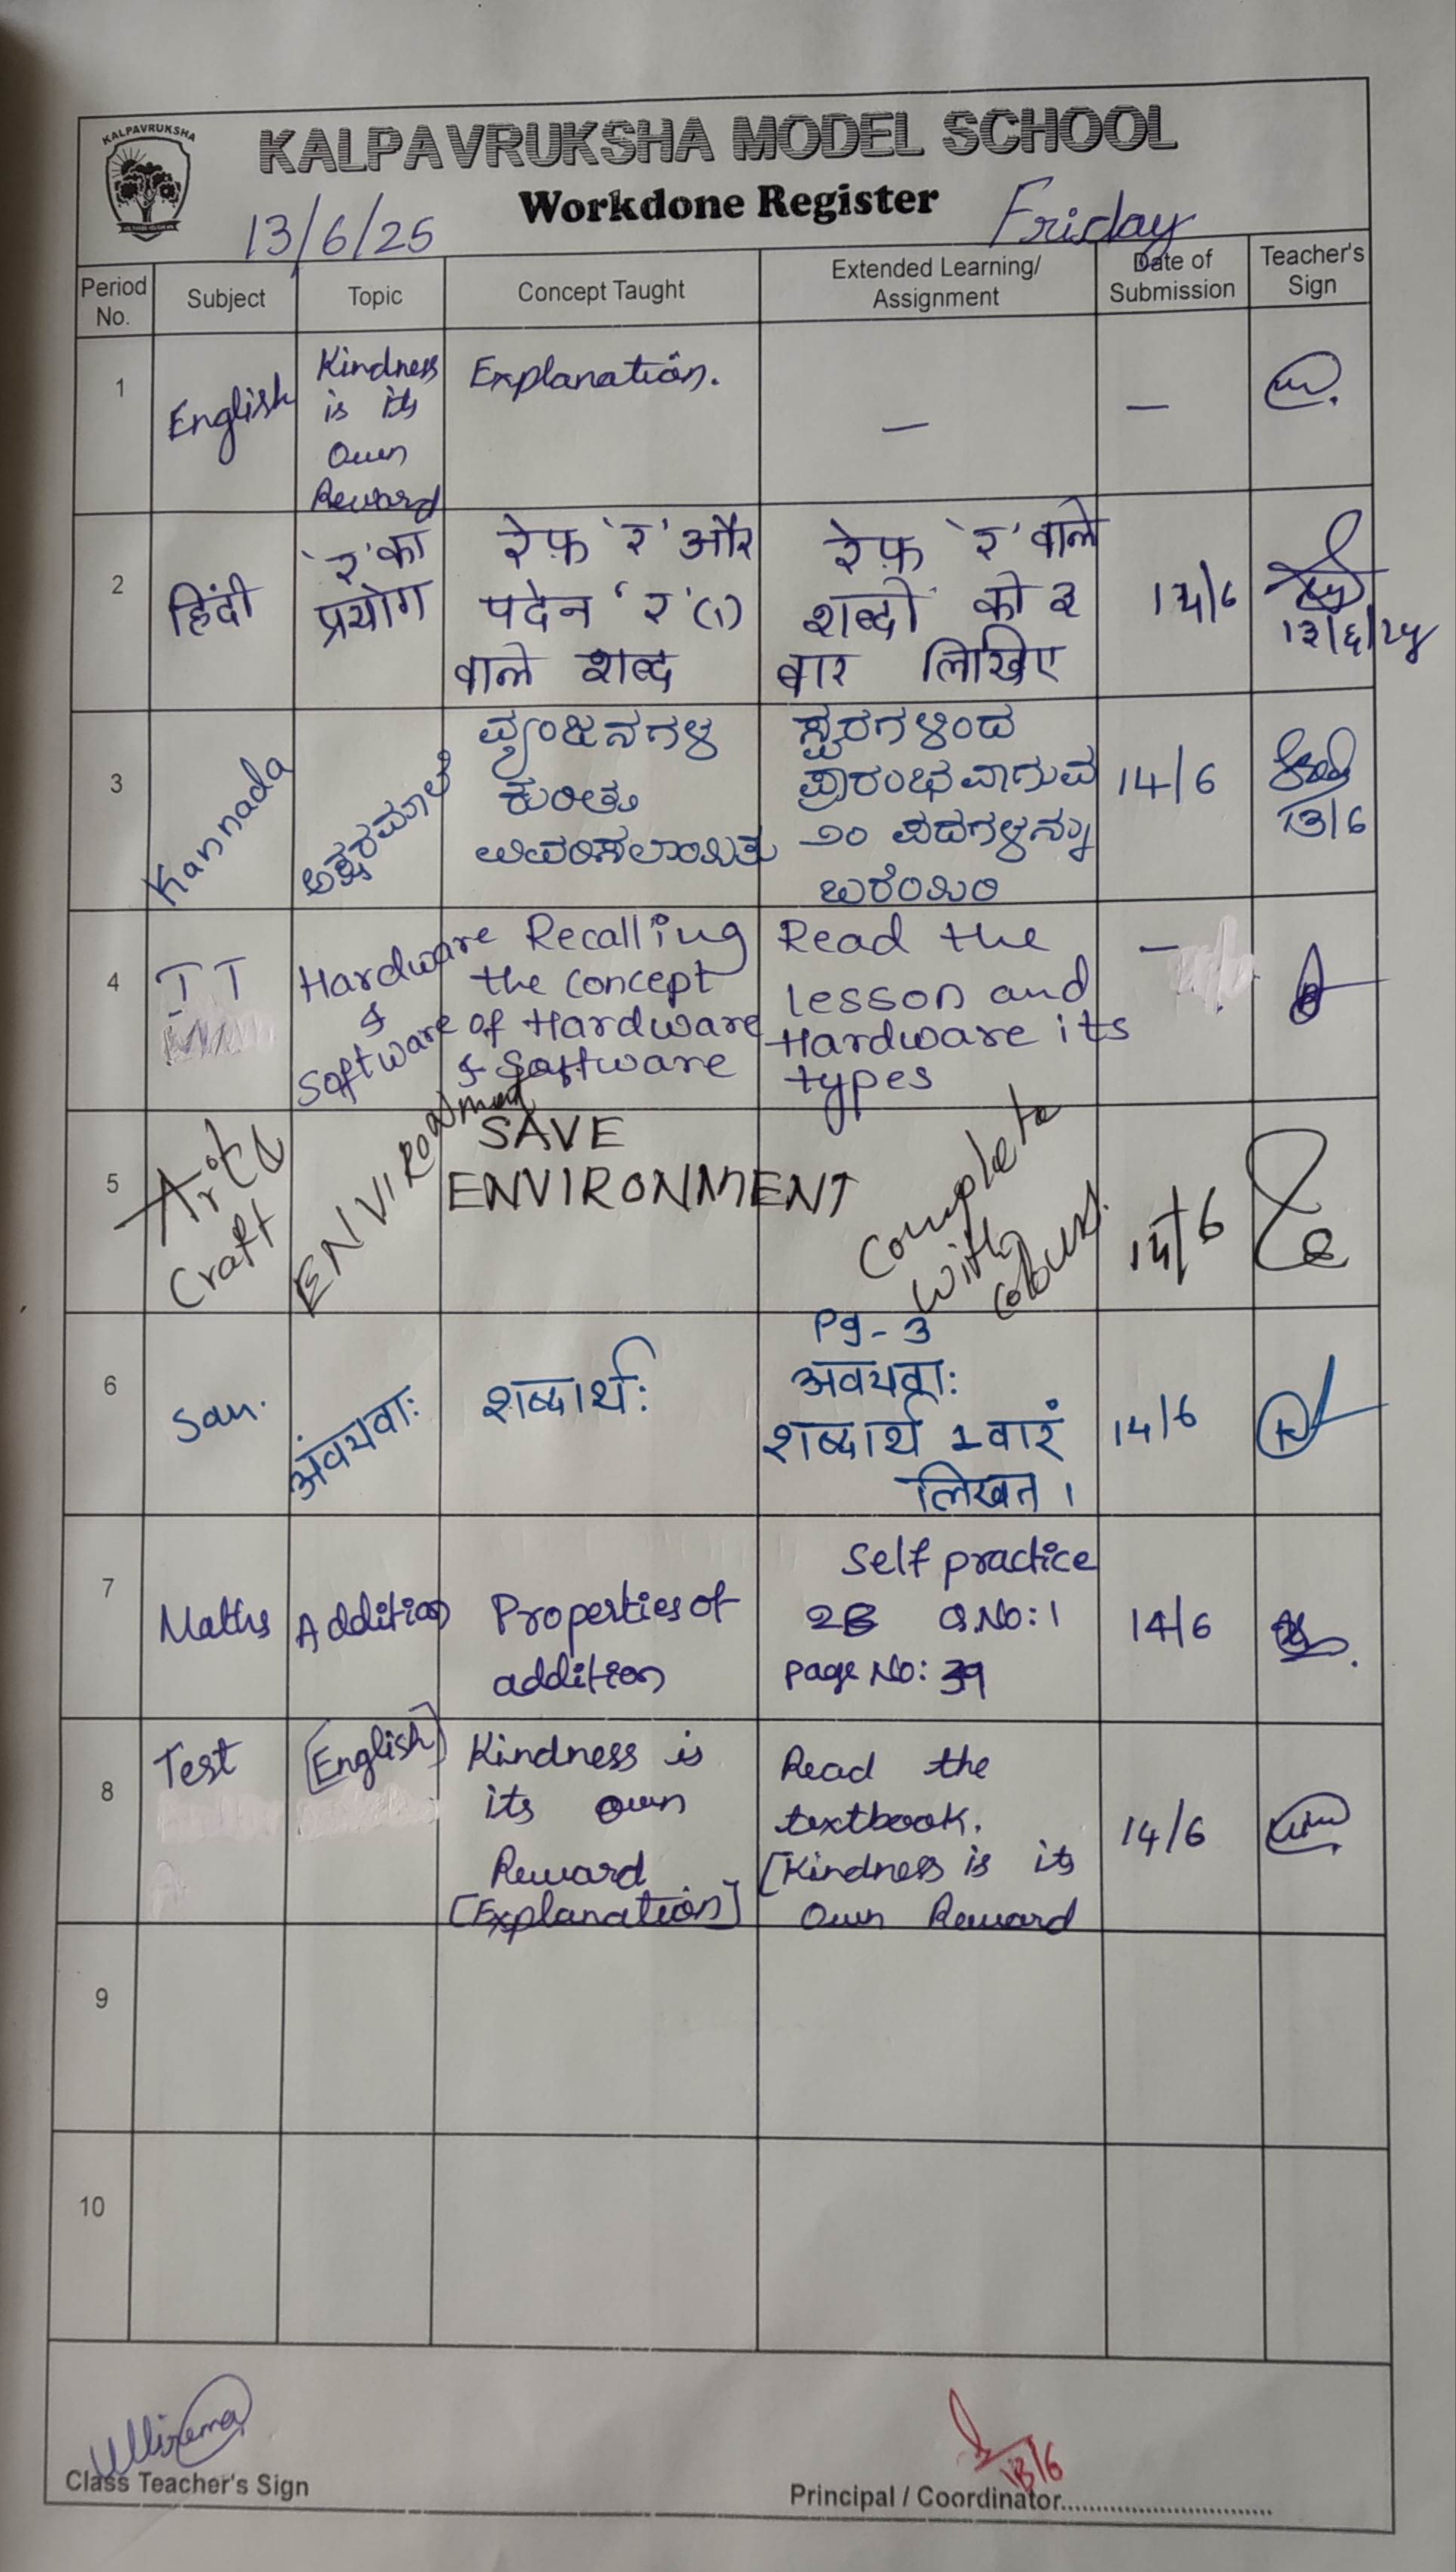 KALPAVRUKSHA
KALPAVRUKSHA MODEL SCHOOL
Workdone Register
13/6/25
Friday
Period No.
Subject
Topic
Concept Taught
Extended Learning/
Assignment
Date of
Submission
Teacher's
Sign
1
English
Kindness
is its
Own
Reward
Explanation.
—
—
2
हिंदी
'र' का
प्रयोग
रेफ़ 'र' और
पदेन 'र' (्र)
वाले शब्द
रेफ़ 'र' वाले
शब्दों को २
बार लिखिए
14/6
3
Kannada
ಅಕ್ಷರಮಾಲೆ
ವ್ಯಂಜನಗಳ
ಕುರಿತು
ವಿವರಿಸಲಾಯಿತು
ಸ್ವರಗಳಿಂದ
ಪ್ರಾರಂಭವಾಗುವ
೨೦ ಪದಗಳನ್ನು
ಬರೆಯಿರಿ
14/6
13/6
4
IT
Hardware
&
Software
Recalling
the concept
of Hardware
& Software
Read the
lesson and
Hardware its
types
—
5
Art &
Craft
ENVIRONment
SAVE
ENVIRONMENT
Complete
with
colours.
14/6
6
San.
अवयवाः
शब्दार्थ:
Pg - 3
अवयवाः
शब्दार्थ 1 वारं
लिखत ।
14/6
7
Maths
Addition
Properties of
addition
Self practice
2B Q.No: 1
Page No: 39
14/6
8
Test
[English]
Kindness is
its own
Reward
[Explanation]
Read the
textbook.
[Kindness is its
Own Reward
14/6
9
10
Class Teacher's Sign
13/6
Principal / Coordinator..............................